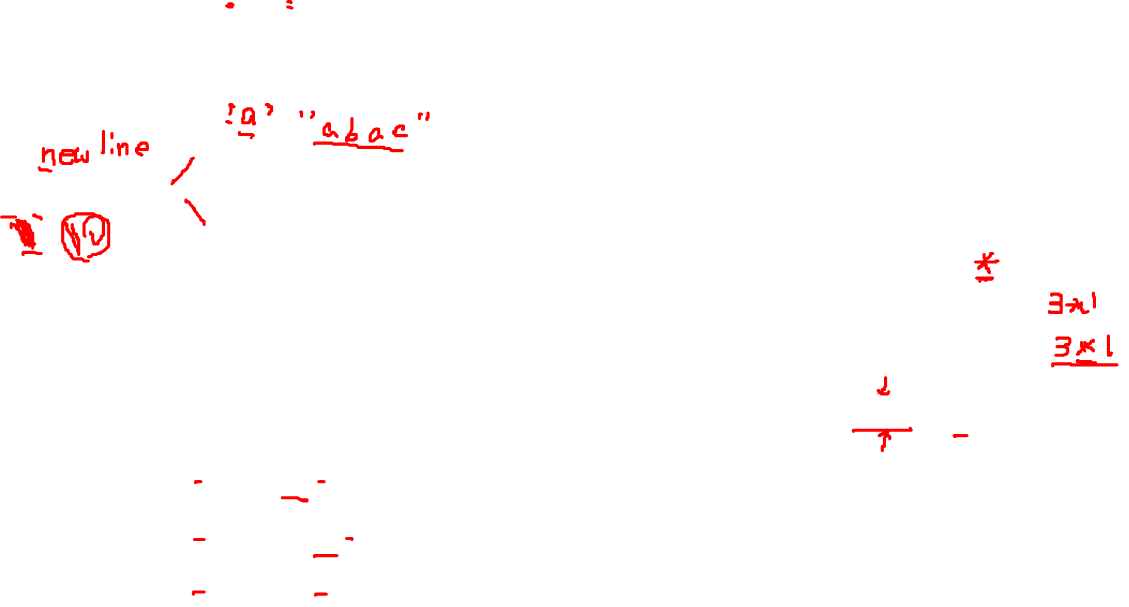 'a' "abac"
newline
*
3*1
3*1